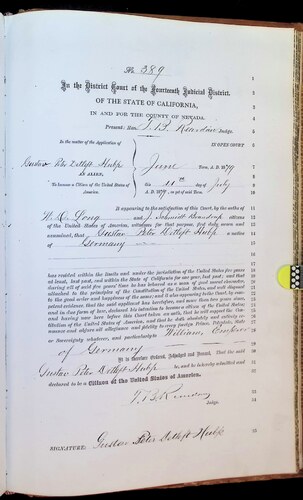 No 389
In the District Court of the Fourteenth Judicial District,
OF THE STATE OF CALIFORNIA,
IN AND FOR THE COUNTY OF NEVADA.
Present: Hon. T. B. Reardan Judge.
In the matter of the Application of
IN OPEN COURT
Gustav Peter Detleff
June Term, A. D. 1879
AN ALIEN,
To become a Citizen of the United States of America.
this day of July
A. D. 1879
It appearing to the satisfaction of this Court, by the oaths of
W. C. Long and J. Schmidt citizens
of the United States of America, witnesses for that purpose, first duly sworn and
examined, that Gustav Peter Detleff a native
of Germany
has resided within the limits and under the jurisdiction of the United States five years
at least, last past, and within the State of California for one year, last past; and that
during all of said five years' time he has behaved as a man of good moral character,
attached to the principles of the Constitution of the United States, and well disposed
to the good order and happiness of the same; and it also appearing to the Court, by com-
petent evidence, that the said applicant has heretofore, and more than two years since,
and in due form of law, declared his intention to become a citizen of the United States
and having now here before this Court taken an oath, that he will support the Con-
stitution of the United States of America, and that he doth absolutely and entirely re-
nounce and abjure all allegiance and fidelity to every foreign Prince, Potentate, State
or Sovereignty whatever, and particularly to William, Emperor
of Germany
It is therefore Ordered, Adjudged and Decreed, That the said
Gustav Peter Detleff be, and is hereby admitted and
declared to be a Citizen of the United States of America.
Judge.
SIGNATURE: Gustav Peter Detleff